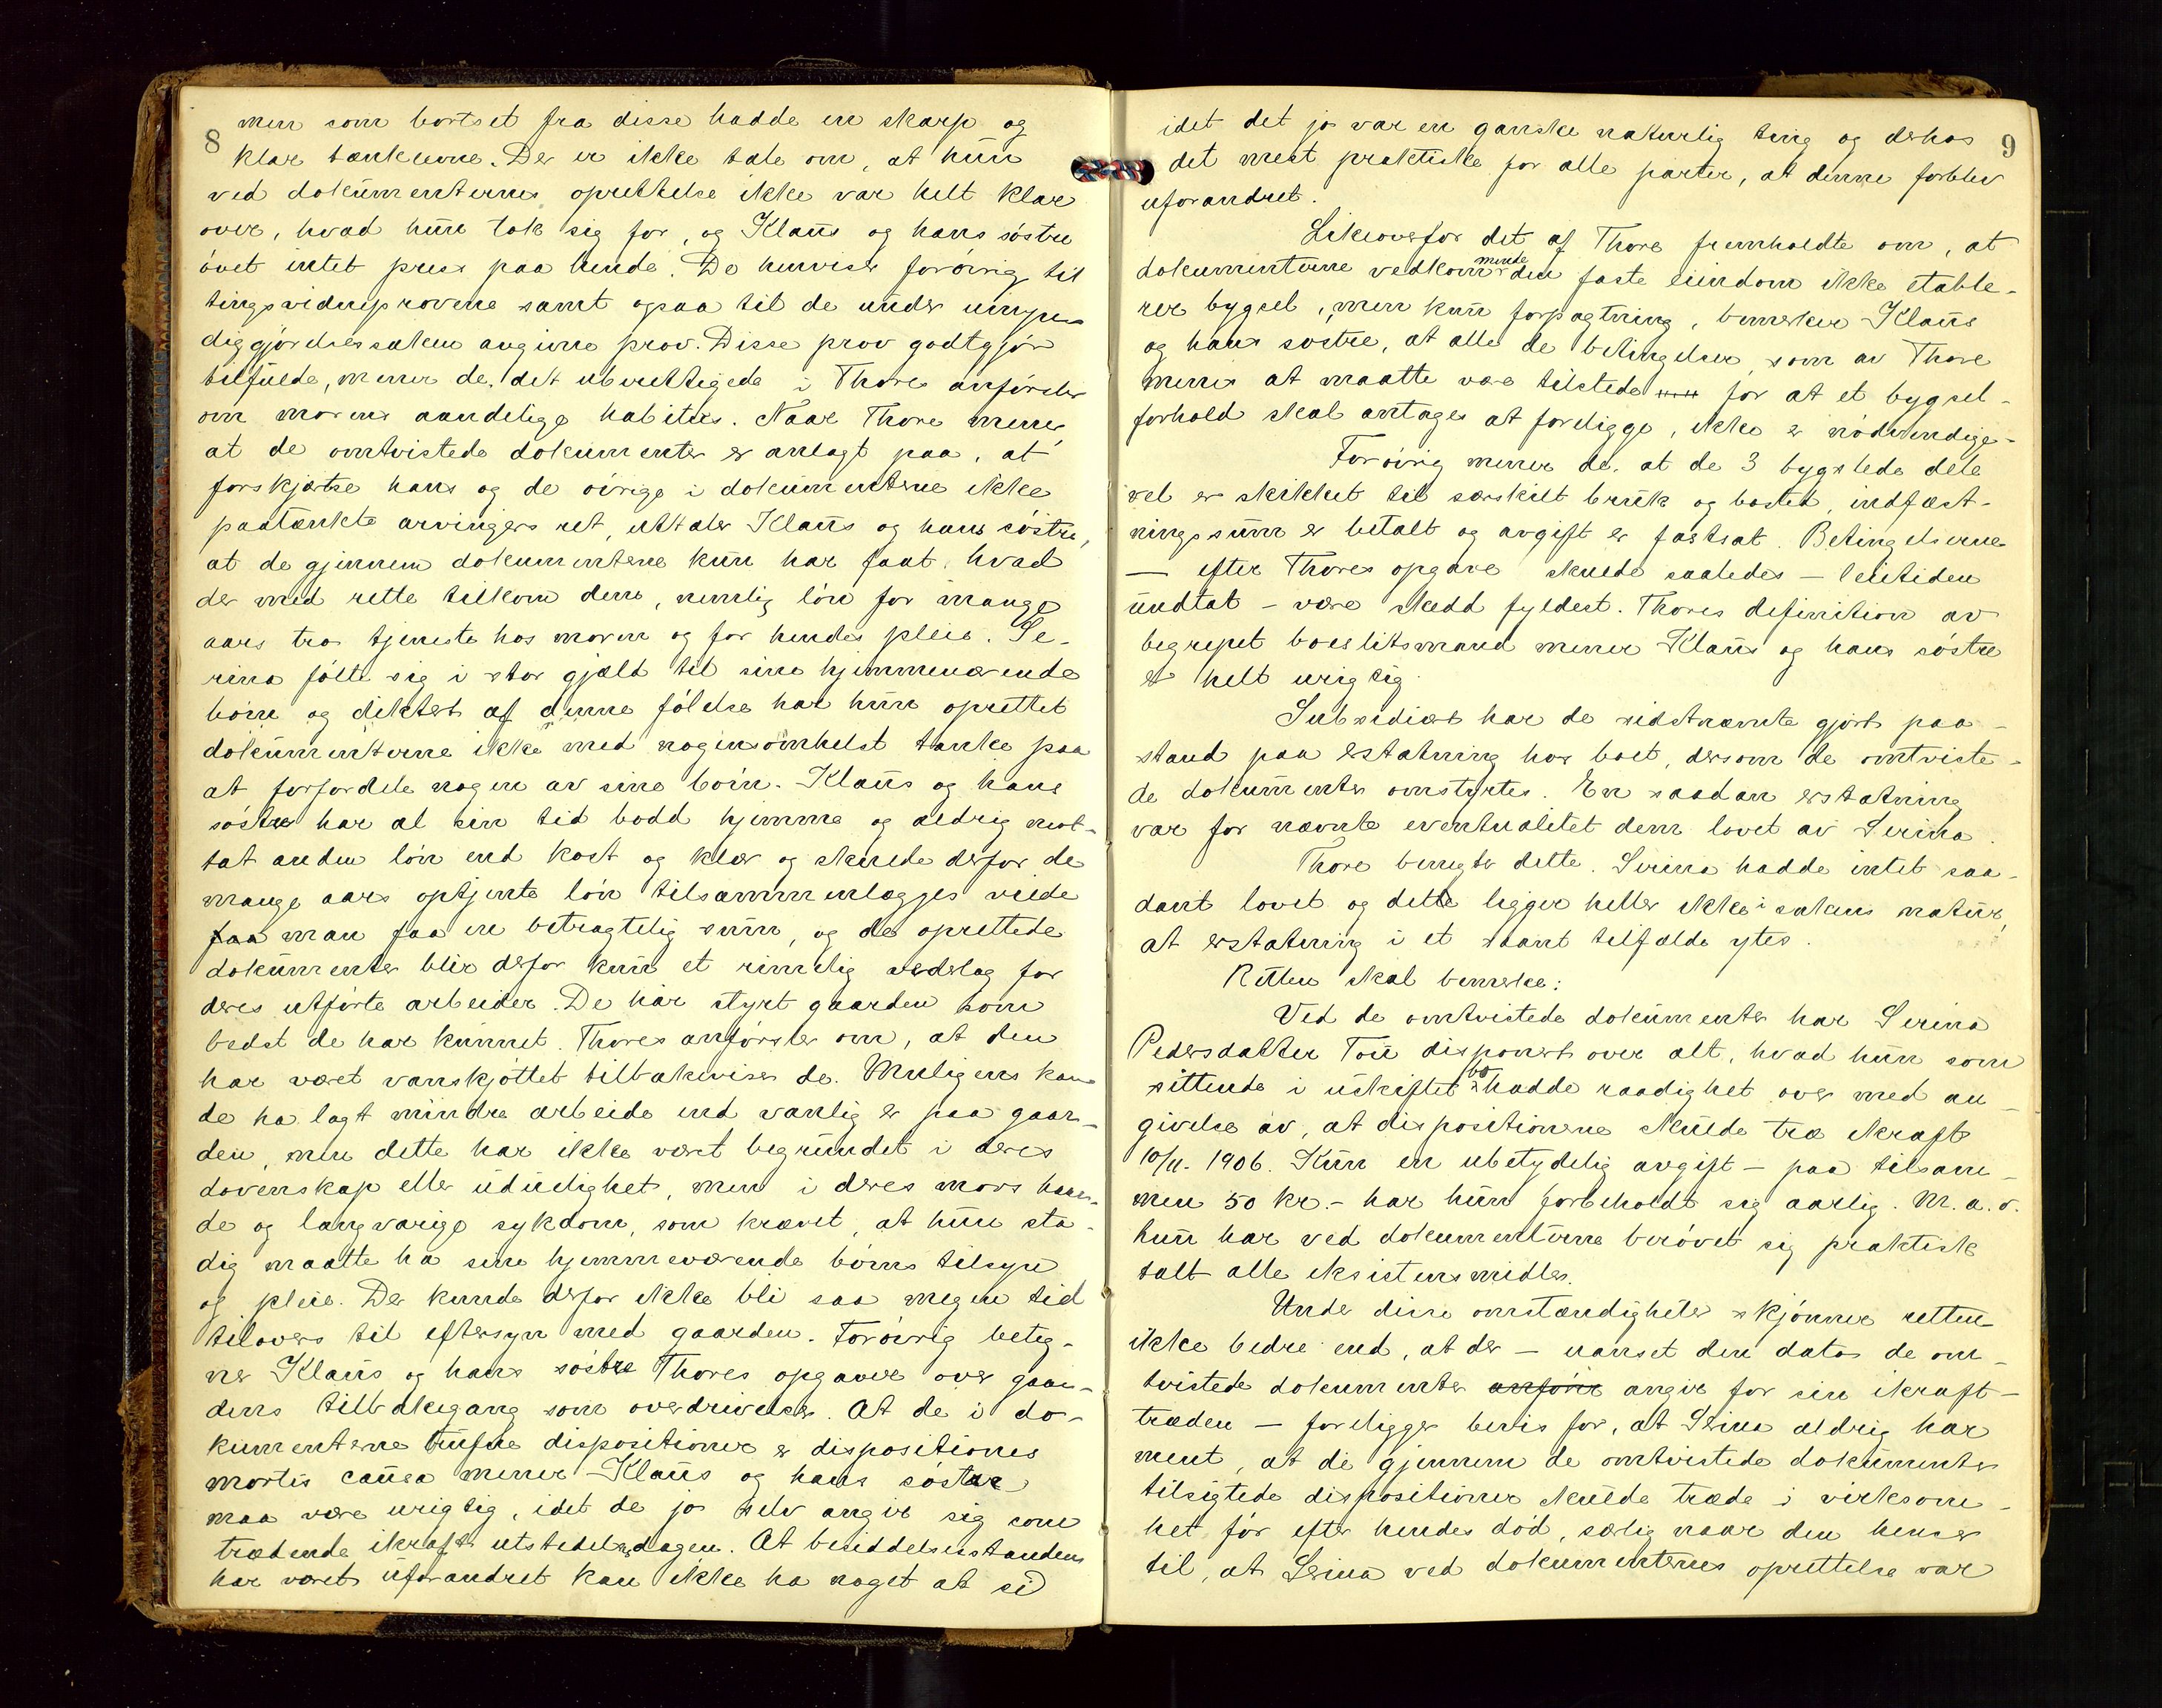 8
men som bortset fra disse hadde en skarp og
klar tankeevne. Der er ikke tale om, at hun
ved dokumenternes oprettelse ikke var helt klar
over, hvad hun tok sig for, og Klaus og hans søstre
øvet intet press paa hende. De henviser forøvrig til
tingsvidneprovene samt ogsaa til de under umyn-
diggjørelsessaken avgivne prov. Disse prov godtgjør
tilfulde, mener de, det uberettigede i Thores anførsler
om morens aandelige habitus. Naar Thore mener,
at de omtvistede dokumenter er anlagt paa, at
forskjærtse hans og de øvrige i dokumenterne ikke
paatænkte arvingers ret, uttaler Klaus og hans søstre,
at de gjennem dokumenterne kun har faat, hvad
der med rette tilkom dem, nemlig løn for mange
aars tro tjeneste hos moren og for hendes pleie. Se-
rina følte sig i stor gjæld til sine hjemmeværende
børn og diktert af denne følelse har hun oprettet
dokumenterne ikke med nogensomhelst tanke paa
at forfordele nogen av sine børn. Klaus og hans
søstre har al sin tid bodd hjemme og aldrig mot-
tat anden løn end kost og klær og skulde derfor de
mange aars optjente løn tilsammenlægges vilde
faa man faa en betragtelig sum, og de oprettede
dokumenter blir derfor kun et rimelig vederlag for
deres utførte arbeider. De har styrt gaarden som
bedst de har kunnet. Thores anførsler om, at den
har været vanskjøttet tilbakeviser de. Muligens kan
de ha lagt mindre arbeide end vanlig er paa gaar-
den, men dette har ikke været begrundet i deres
dovenskap eller udulighet, men i deres mors haar-
de og langvarige sykdom, som krævet, at hun sta-
dig maatte ha sine hjemmeværende børns tilsyn
og pleie. Der kunde derfor ikke bli saa megen tid
tilovers til eftersyn med gaarden. Forøvrig beteg-
ner Klaus og hans søstre Thores opgaver over gaar-
dens tilbakegang som overdrivelser. At de i do-
kumenterne trufne dispositioner er dispositiones
mortis causa mener Klaus og hans søstre
maa være urigtig, idet de jo selv angir sig som
trædende ikraft utstedelsesdagen. At besiddelsesstanden
har været uforandret kan ikke ha noget at si
9
idet det jo var en ganske naturlig ting og derhos
det mest praktiske for alle parter, at denne forblev
uforandret.
Likeoverfor det af Thore fremholdte om, at
dokumenterne vedkommende den faste eiendom ikke etable-
rer bygsel, men kun forpagtning, bemerker Klaus
og hans søstre, at alle de betingelser som av Thore
menes at maatte være tilstede for at et bygsel-
forhold skal antages at foreligge, ikke er nødvendige.
Forøvrig mener de, at de 3 bygslede dele
vel er skikket til særskilt bruk og bosted, indfæst-
ningssum er betalt og avgift er fastsat. Betingelserne
– efter Thores opgave skulde saaledes – leietiden
undtat – være skedd fyldest. Thores definition av
begrepet boeslitsmand mener Klaus og hans søstre
er helt urigtig.
Subsidiært har de sidstnævnte gjort paa-
stand paa erstatning hos boet, dersom de omtviste-
de dokumenter omstyrtes. En saadan erstatning
var for nævnte eventualitet dem lovet av Serina.
Thore benegter dette. Serina hadde intet saa-
dant lovet og dette ligger heller ikke i sakens natur,
at erstatning i et saant tilfælde ytes.
Retten skal bemerke:
Ved de omtvistede dokumenter har Serina
Pedersdatter Tou disponert over alt, hvad hun som
sittende i uskiftet bo hadde raadighet over med an-
givelse av, at dispositionerne skulde træ ikraft
10/11. 1906. Kun en ubetydelig avgift – paa tilsam-
men 50 kr. – har hun forbeholdt sig aarlig. M. a. o.
hun har ved dokumenterne berøvet sig praktisk
talt alle eksistensmidler.
Under disse omstændigheter skjønner retten
ikke bedre end, at der – uanset den dato de om-
tvistede dokumenter anfører angir for sin ikraft-
træden – foreligger bevis for, at Serina aldrig har
ment, at de gjennem de omtvistede dokumenter
tilsigtede dispositioner skulde træde i virksom-
het før efter hendes død, særlig naar den henser
til, at Serina ved dokumenternes oprettelse var